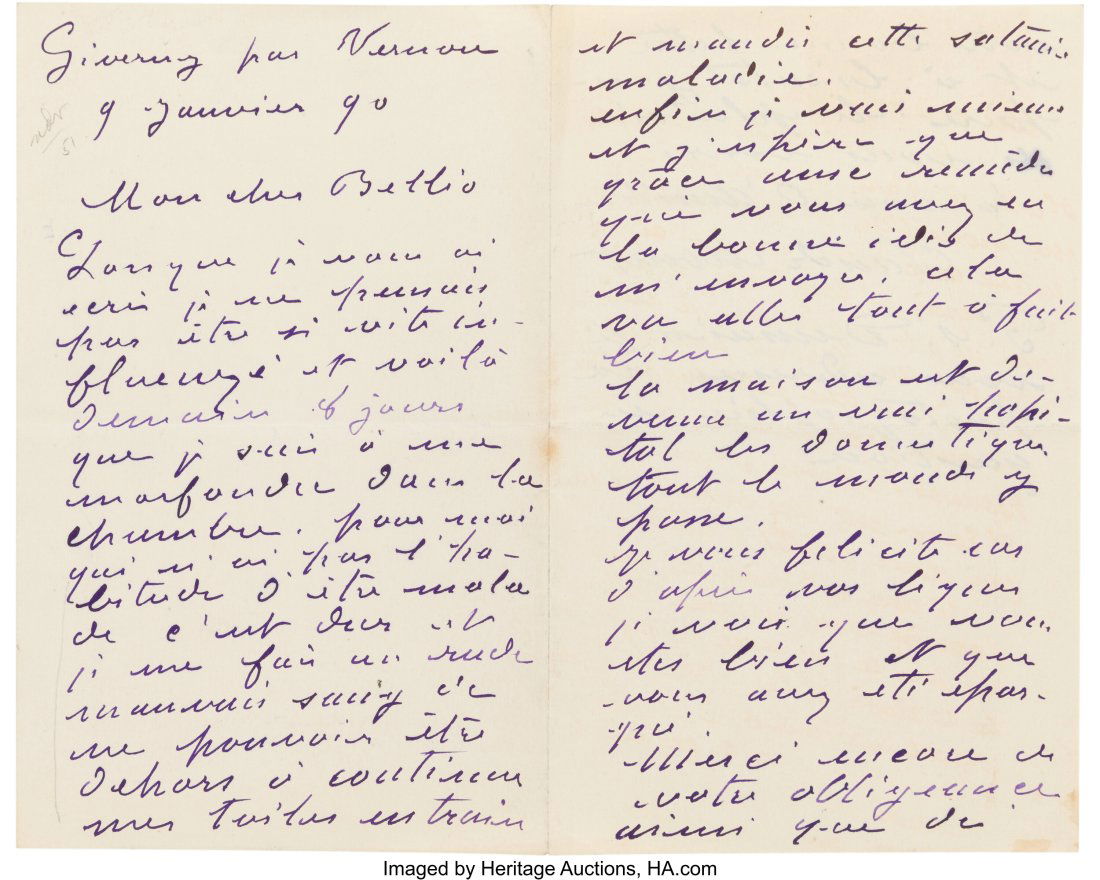 Giverny par Vernon
9 Janvier 90
Mon cher Bellio
Lorsque je vous ai
écris je ne pensais
pas être si vite in-
fluenzé et voilà
demain 8 jours
que je suis à me
morfondre dans la
chambre. pour moi
qui n'ai pas l'ha-
bitude d'être mala
de c'est dur et
je me fais un rude
mauvais sang de
ne pouvoir être
dehors à continuer
mes toiles en train
et maudis cette satanée
maladie.
enfin je vais mieux
et j'espère que
grâce aux remèdes
que vous avez eu
la bonne idée de
m'envoyer, cela
va aller tout à fait
bien
la maison est de-
venue un vrai hôpi-
tal les domestiques
tout le monde y
passe.
je vous félicite car
d'après vos lignes
je vois que vous
êtes bien et que
vous avez été épar-
gné.
Merci encore de
votre obligeance
ainsi que de
Imaged by Heritage Auctions, HA.com